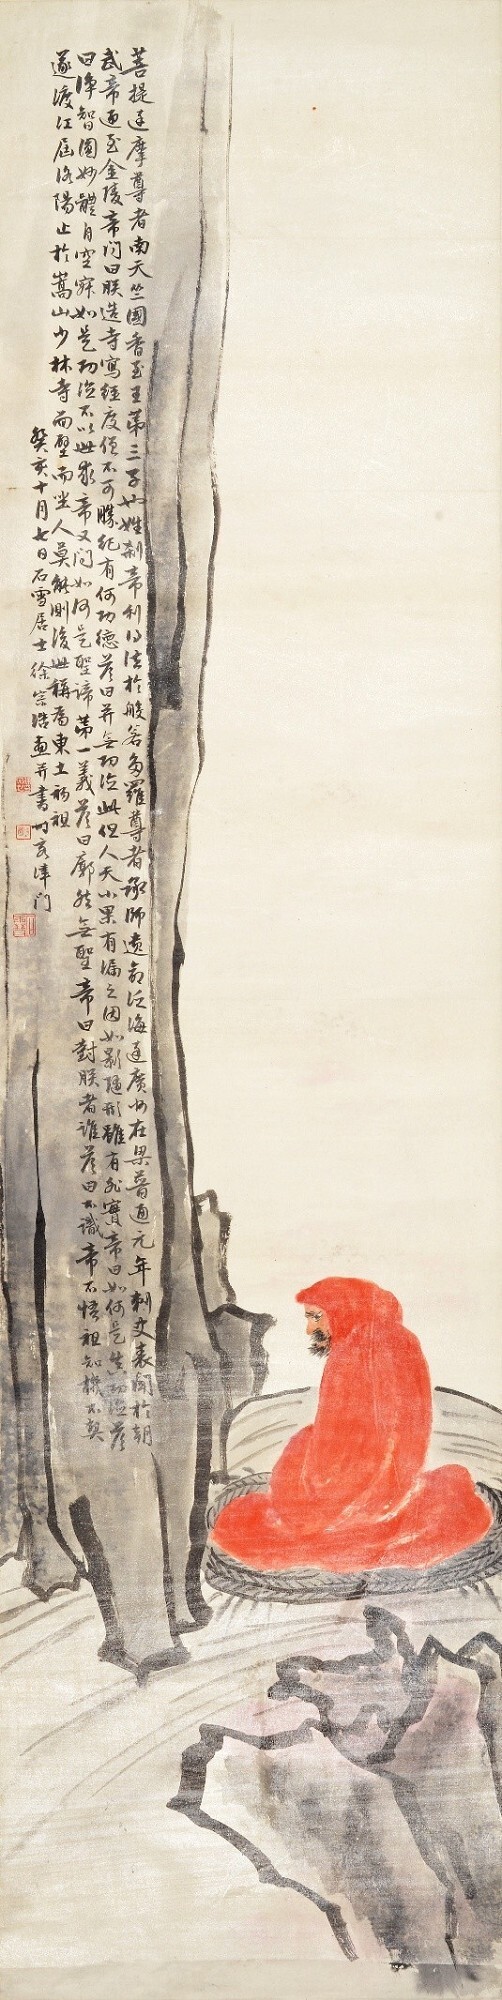 菩提達摩尊者南天竺國香至王第三子也姓刹帝利得法於般若多羅尊者承師遺命泛海達廣州在梁普通元年刺史表聞於朝
武帝迎至金陵帝問曰朕造寺寫經度僧不可勝紀有何功德答曰並無功德此但人天小果有漏之因如影隨形雖有非實帝曰如何是真功德答
曰淨智圓妙體自空寂如是功德不以世求帝又問如何是聖諦第一義答曰廓然無聖帝曰對朕者誰答曰不識帝不悟祖知機不契
遂渡江屆洛陽止於嵩山少林寺面壁而坐人莫能測後世稱為東土初祖
癸亥十月七日石雪居士徐宗浩畫并書時客津門